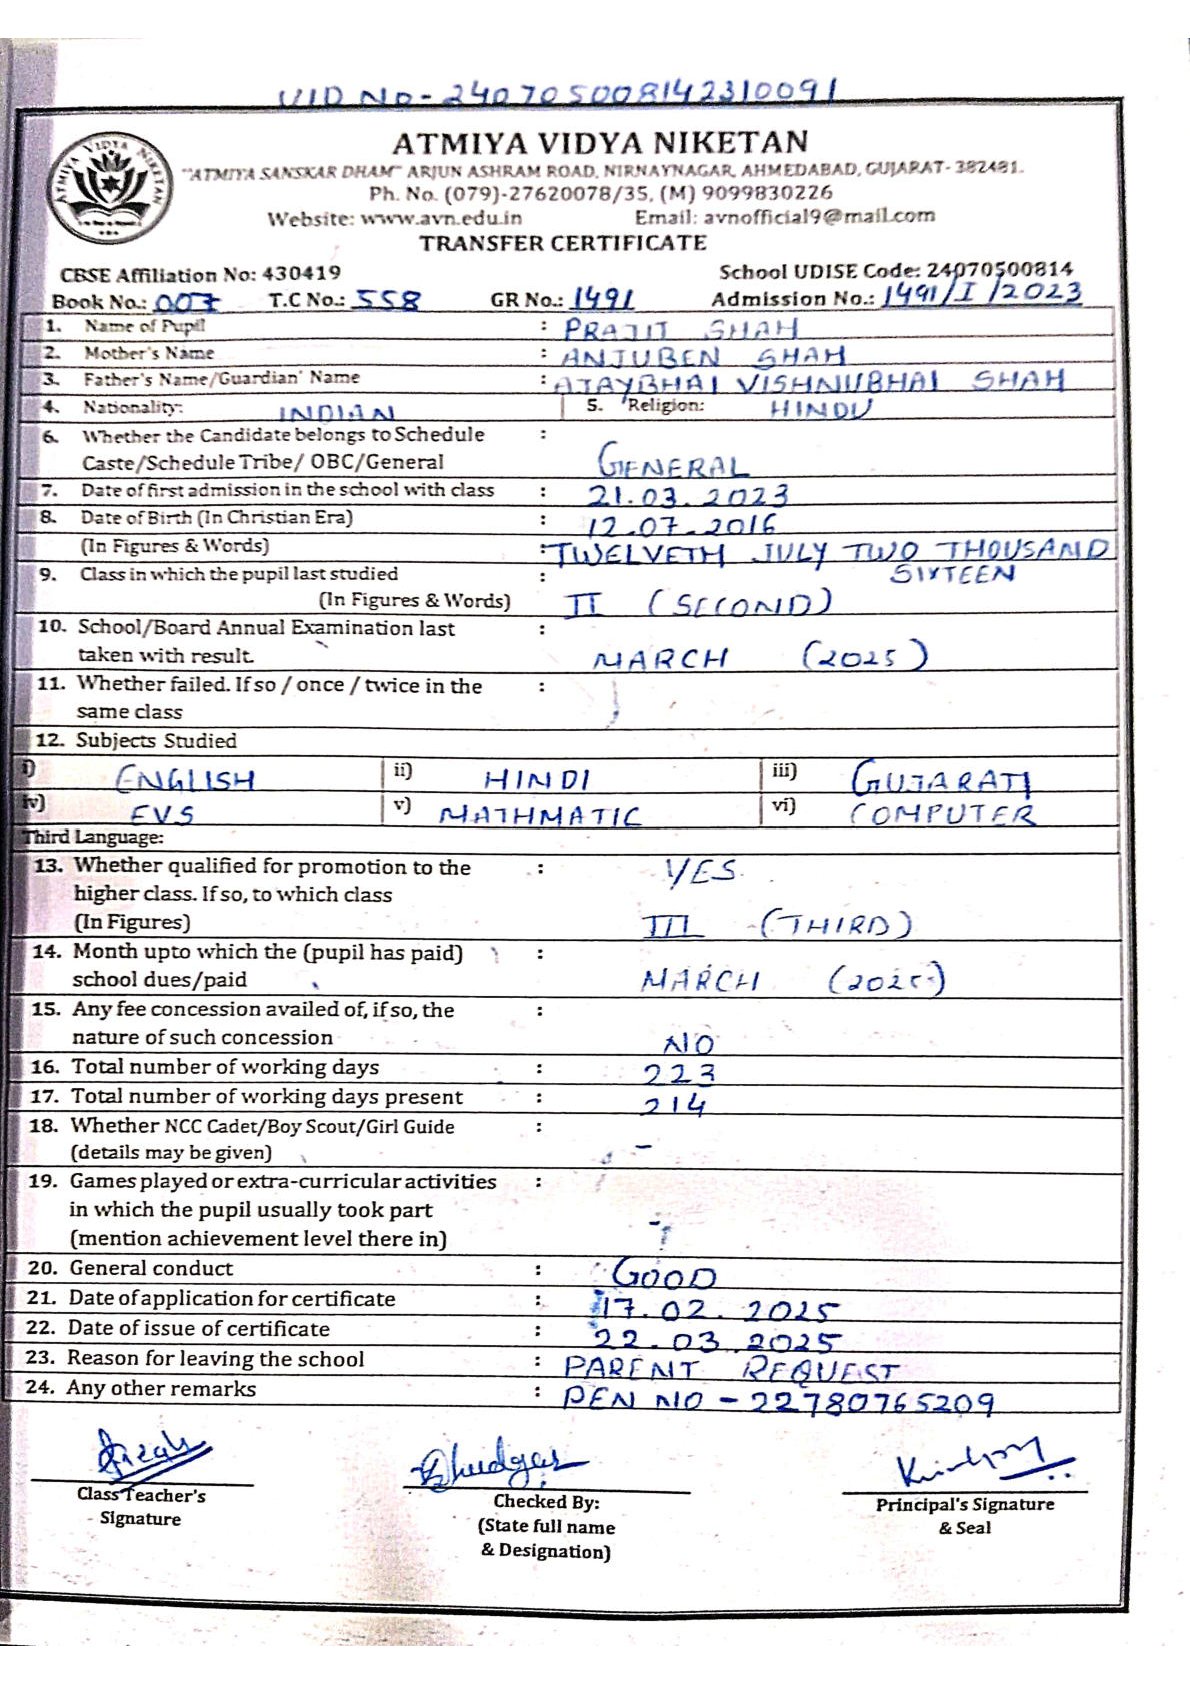 UID No - 240705008142310091
ATMIYA VIDYA NIKETAN
ATMIYA VIDYA NIKETAN
"ATMIYA SANSKAR DHAM" ARJUN ASHRAM ROAD, NIRNAYNAGAR, AHMEDABAD, GUJARAT- 382481.
Ph. No. (079)-27620078/35, (M) 9099830226
Website: www.avn.edu.in Email: avnofficial9@mail.com
TRANSFER CERTIFICATE
CBSE Affiliation No: 430419 School UDISE Code: 24070500814
Book No.: 007 T.C No.: 558 GR No.: 1491 Admission No.: 1491/I/2023
1. Name of Pupil : PRAJIT SHAH
2. Mother's Name : ANJUBEN SHAH
3. Father's Name/Guardian' Name : AJAYBHAI VISHNUBHAI SHAH
4. Nationality: INDIAN 5. Religion: HINDU
6. Whether the Candidate belongs to Schedule :
Caste/Schedule Tribe/ OBC/General GENERAL
7. Date of first admission in the school with class : 21.03.2023
8. Date of Birth (In Christian Era) : 12.07.2016
(In Figures & Words) : TWELVETH JULY TWO THOUSAND
9. Class in which the pupil last studied : SIXTEEN
(In Figures & Words) II (SECOND)
10. School/Board Annual Examination last :
taken with result. MARCH (2025)
11. Whether failed. If so / once / twice in the :
same class
12. Subjects Studied
i) ENGLISH ii) HINDI iii) GUJARATI
iv) EVS v) MATHMATIC vi) COMPUTER
Third Language:
13. Whether qualified for promotion to the : YES
higher class. If so, to which class
(In Figures) III (THIRD)
14. Month upto which the (pupil has paid) :
school dues/paid MARCH (2025)
15. Any fee concession availed of, if so, the :
nature of such concession NO
16. Total number of working days : 223
17. Total number of working days present : 214
18. Whether NCC Cadet/Boy Scout/Girl Guide :
(details may be given) -
19. Games played or extra-curricular activities :
in which the pupil usually took part -
(mention achievement level there in)
20. General conduct : GOOD
21. Date of application for certificate : 17.02.2025
22. Date of issue of certificate : 22.03.2025
23. Reason for leaving the school : PARENT REQUEST
24. Any other remarks : PEN NO - 22780765209
Class Teacher's
Signature
Checked By:
(State full name
& Designation)
Principal's Signature
& Seal